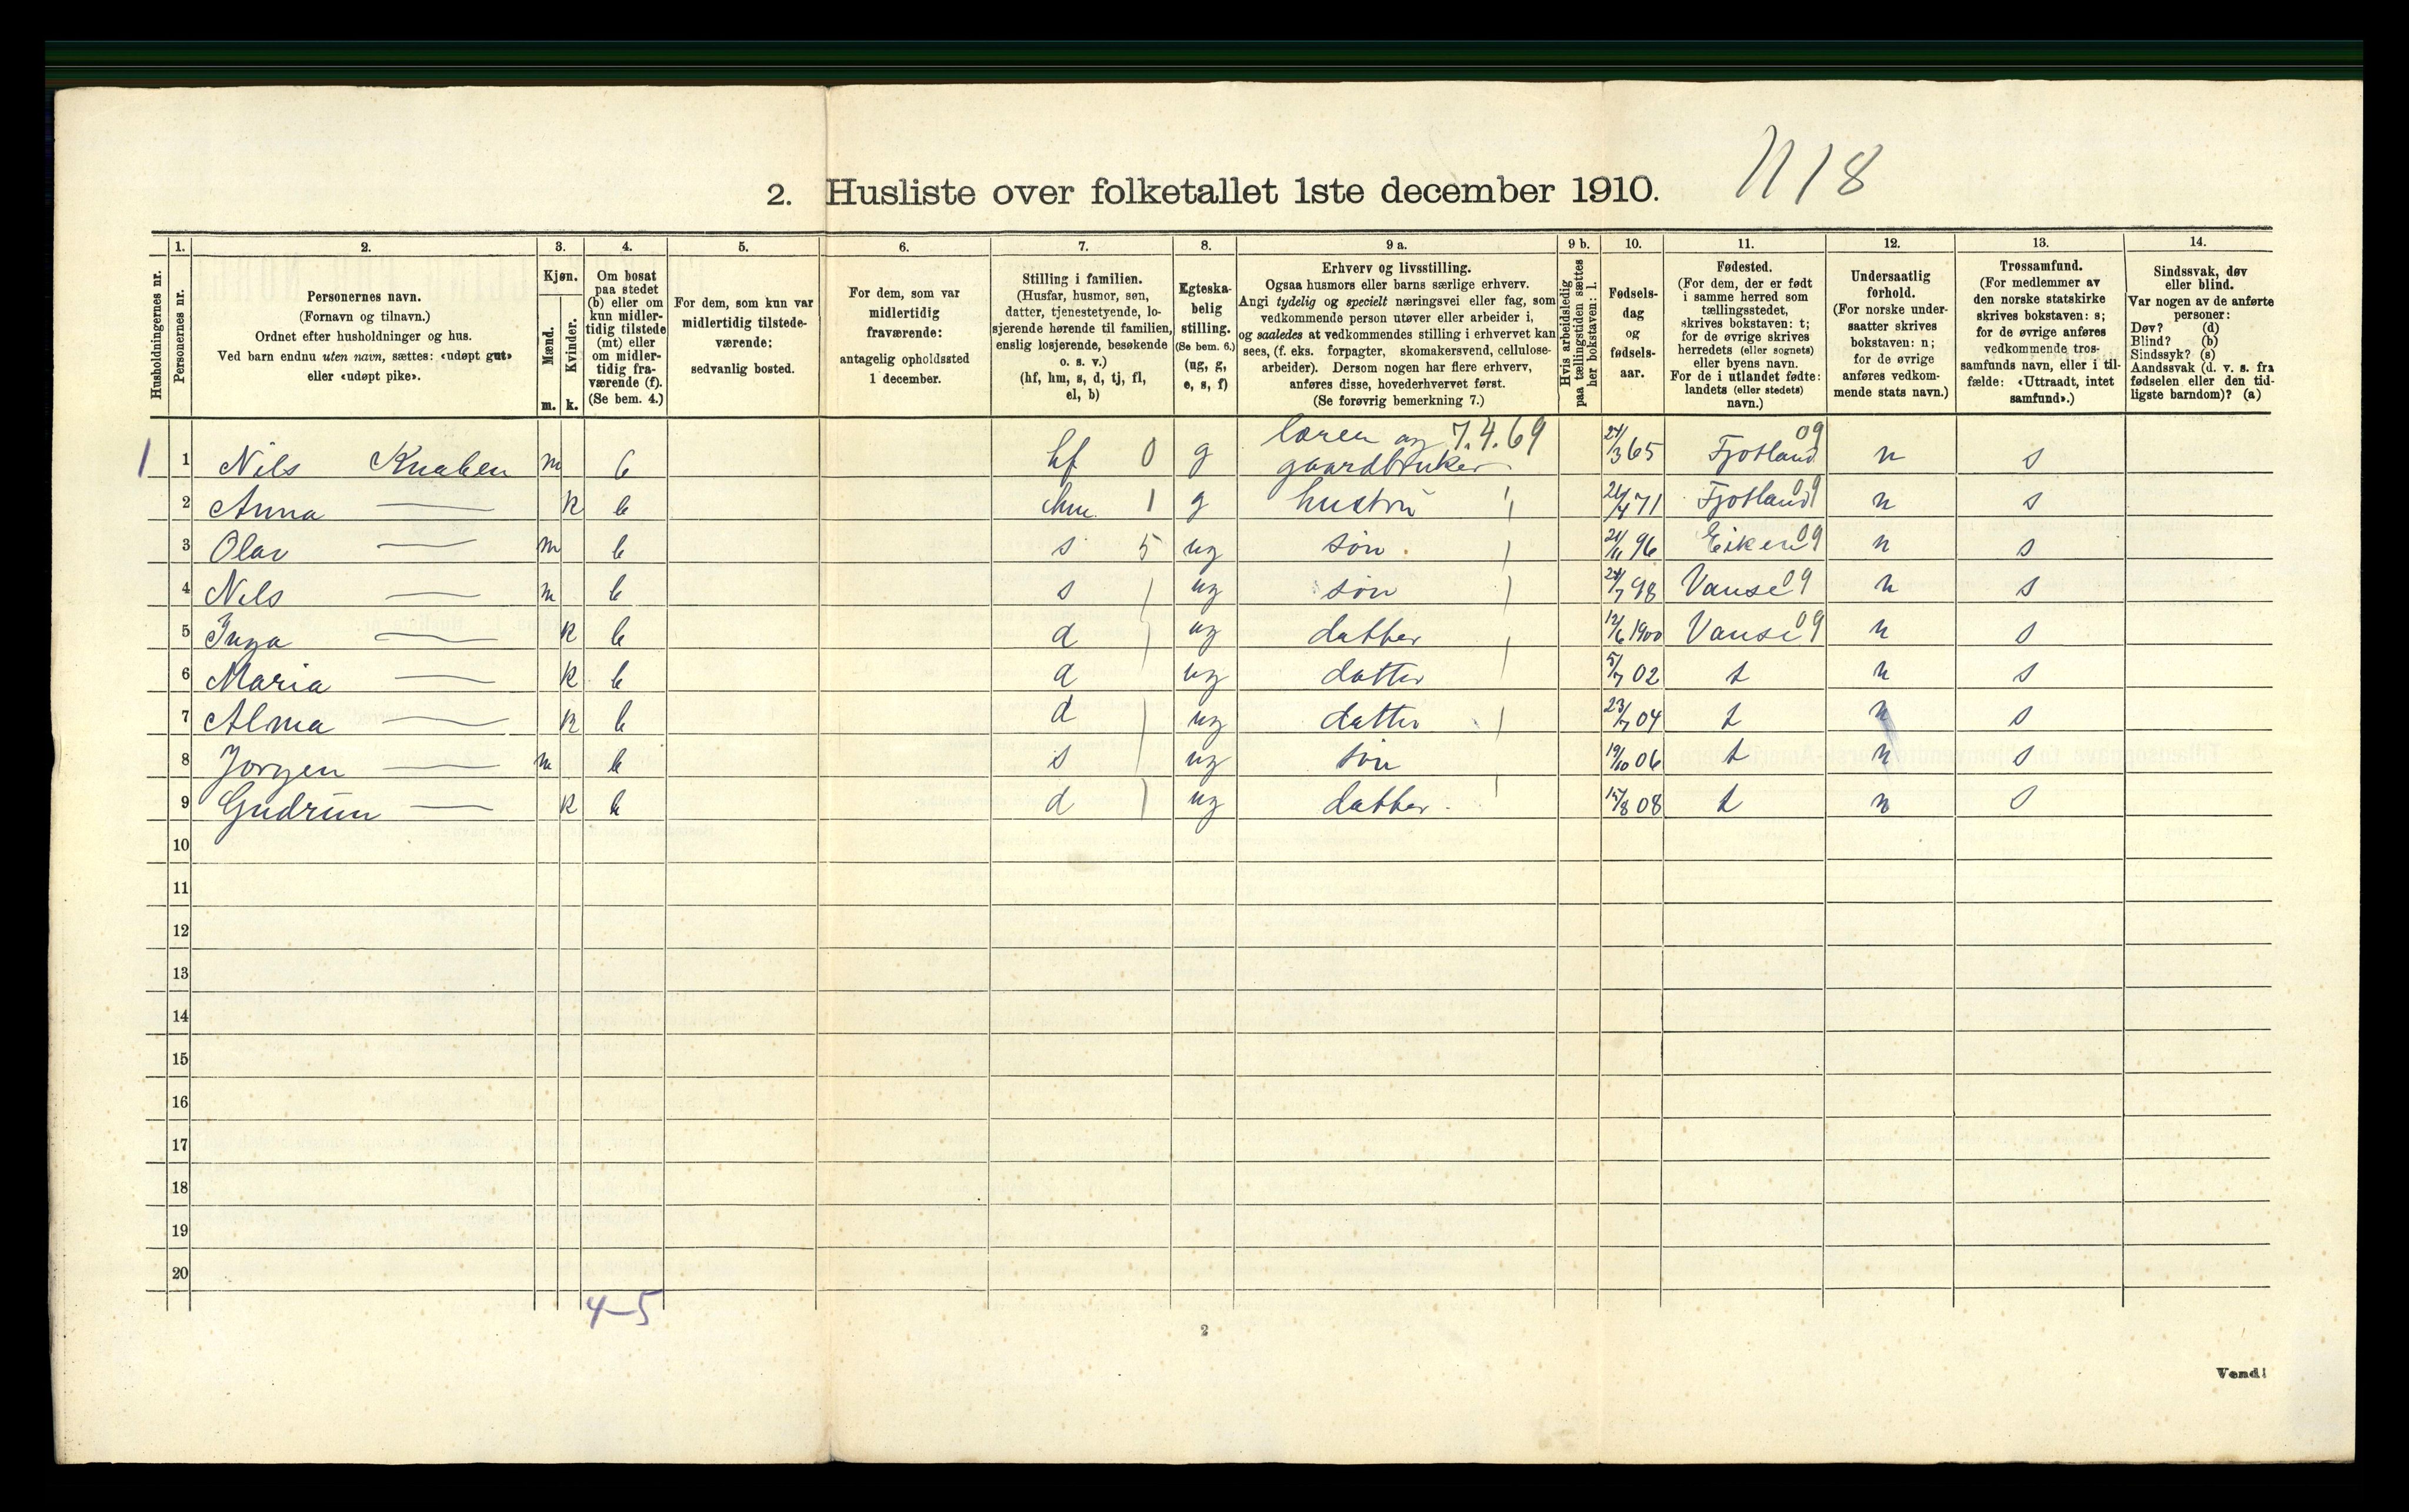 2. Husliste over folketallet 1ste december 1910. N 18
Husholdningernes nr.
1. Personernes nr.
2. Personernes navn.
(Fornavn og tilnavn.)
Ordnet efter husholdninger og hus.
Ved barn endnu uten navn, sættes: «udøpt gut»
eller «udøpt pike».
3. Kjøn.
Mænd. m.
Kvinder. k.
4. Om bosat
paa stedet
(b) eller om
kun midler-
tidig tilstede
(mt) eller
om midler-
tidig fra-
værende (f).
(Se bem. 4.)
5. For dem, som kun var
midlertidig tilstede-
værende:
sedvanlig bosted.
6. For dem, som var
midlertidig
fraværende:
antagelig opholdssted
1 december.
7. Stilling i familien.
(Husfar, husmor, søn,
datter, tjenestetyende, lo-
sjerende hørende til familien,
enslig losjerende, besøkende
o. s. v.)
(hf, hm, s, d, tj, fl,
el, b)
8. Egteska-
belig
stilling.
(Se bem. 6.)
(ug, g,
e, s, f)
9 a. Erhverv og livsstilling.
Ogsaa husmors eller barns særlige erhverv.
Angi tydelig og specielt næringsvei eller fag, som
vedkommende person utøver eller arbeider i,
og saaledes at vedkommendes stilling i erhvervet kan
sees, (f. eks. forpagter, skomakersvend, cellulose-
arbeider). Dersom nogen har flere erhverv,
anføres disse, hovederhvervet først.
(Se forøvrig bemerkning 7.)
9 b. Hvis arbeidsledig
paa tællingstiden sættes
her bokstaven: l.
10. Fødsels-
dag
og
fødsels-
aar.
11. Fødested.
(For dem, der er født
i samme herred som
tællingsstedet,
skrives bokstaven: t;
for de øvrige skrives
herredets (eller sognets)
eller byens navn.
For de i utlandet fødte:
landets (eller stedets)
navn.)
12. Undersaatlig
forhold.
(For norske under-
saatter skrives
bokstaven: n;
for de øvrige
anføres vedkom-
mende stats navn.)
13. Trossamfund.
(For medlemmer av
den norske statskirke
skrives bokstaven: s;
for de øvrige anføres
vedkommende tros-
samfunds navn, eller i til-
fælde: «Uttraadt, intet
samfund».)
14. Sindssvak, døv
eller blind.
Var nogen av de anførte
personer:
Døv? (d)
Blind? (b)
Sindssyk? (s)
Aandssvak (d. v. s. fra
fødselen eller den tid-
ligste barndom)? (a)
1 1 Nils Knaben m b hf 0 g lærer og 7.4.69 gaardbruker 24/3 65 Fjotland 09 n s
2 Anna — k b hm 1 g hustru 26/4 71 Fjotland 09 n s
3 Olav — m b s 5 ug søn 21/11 96 Eiken 09 n s
4 Nils — m b s ug søn 24/7 98 Vanse 09 n s
5 Inga — k b d ug datter 12/6 1900 Vanse 09 n s
6 Maria — k b d ug datter 5/7 02 t n s
7 Alma — k b d ug datter 23/7 04 t n s
8 Jørgen — m b s ug søn 19/10 06 t n s
9 Gudrun — k b d ug datter 15/8 08 t n s
10
11
12
13
14
15
16
17
18
19
20
4–5
2
Vend!